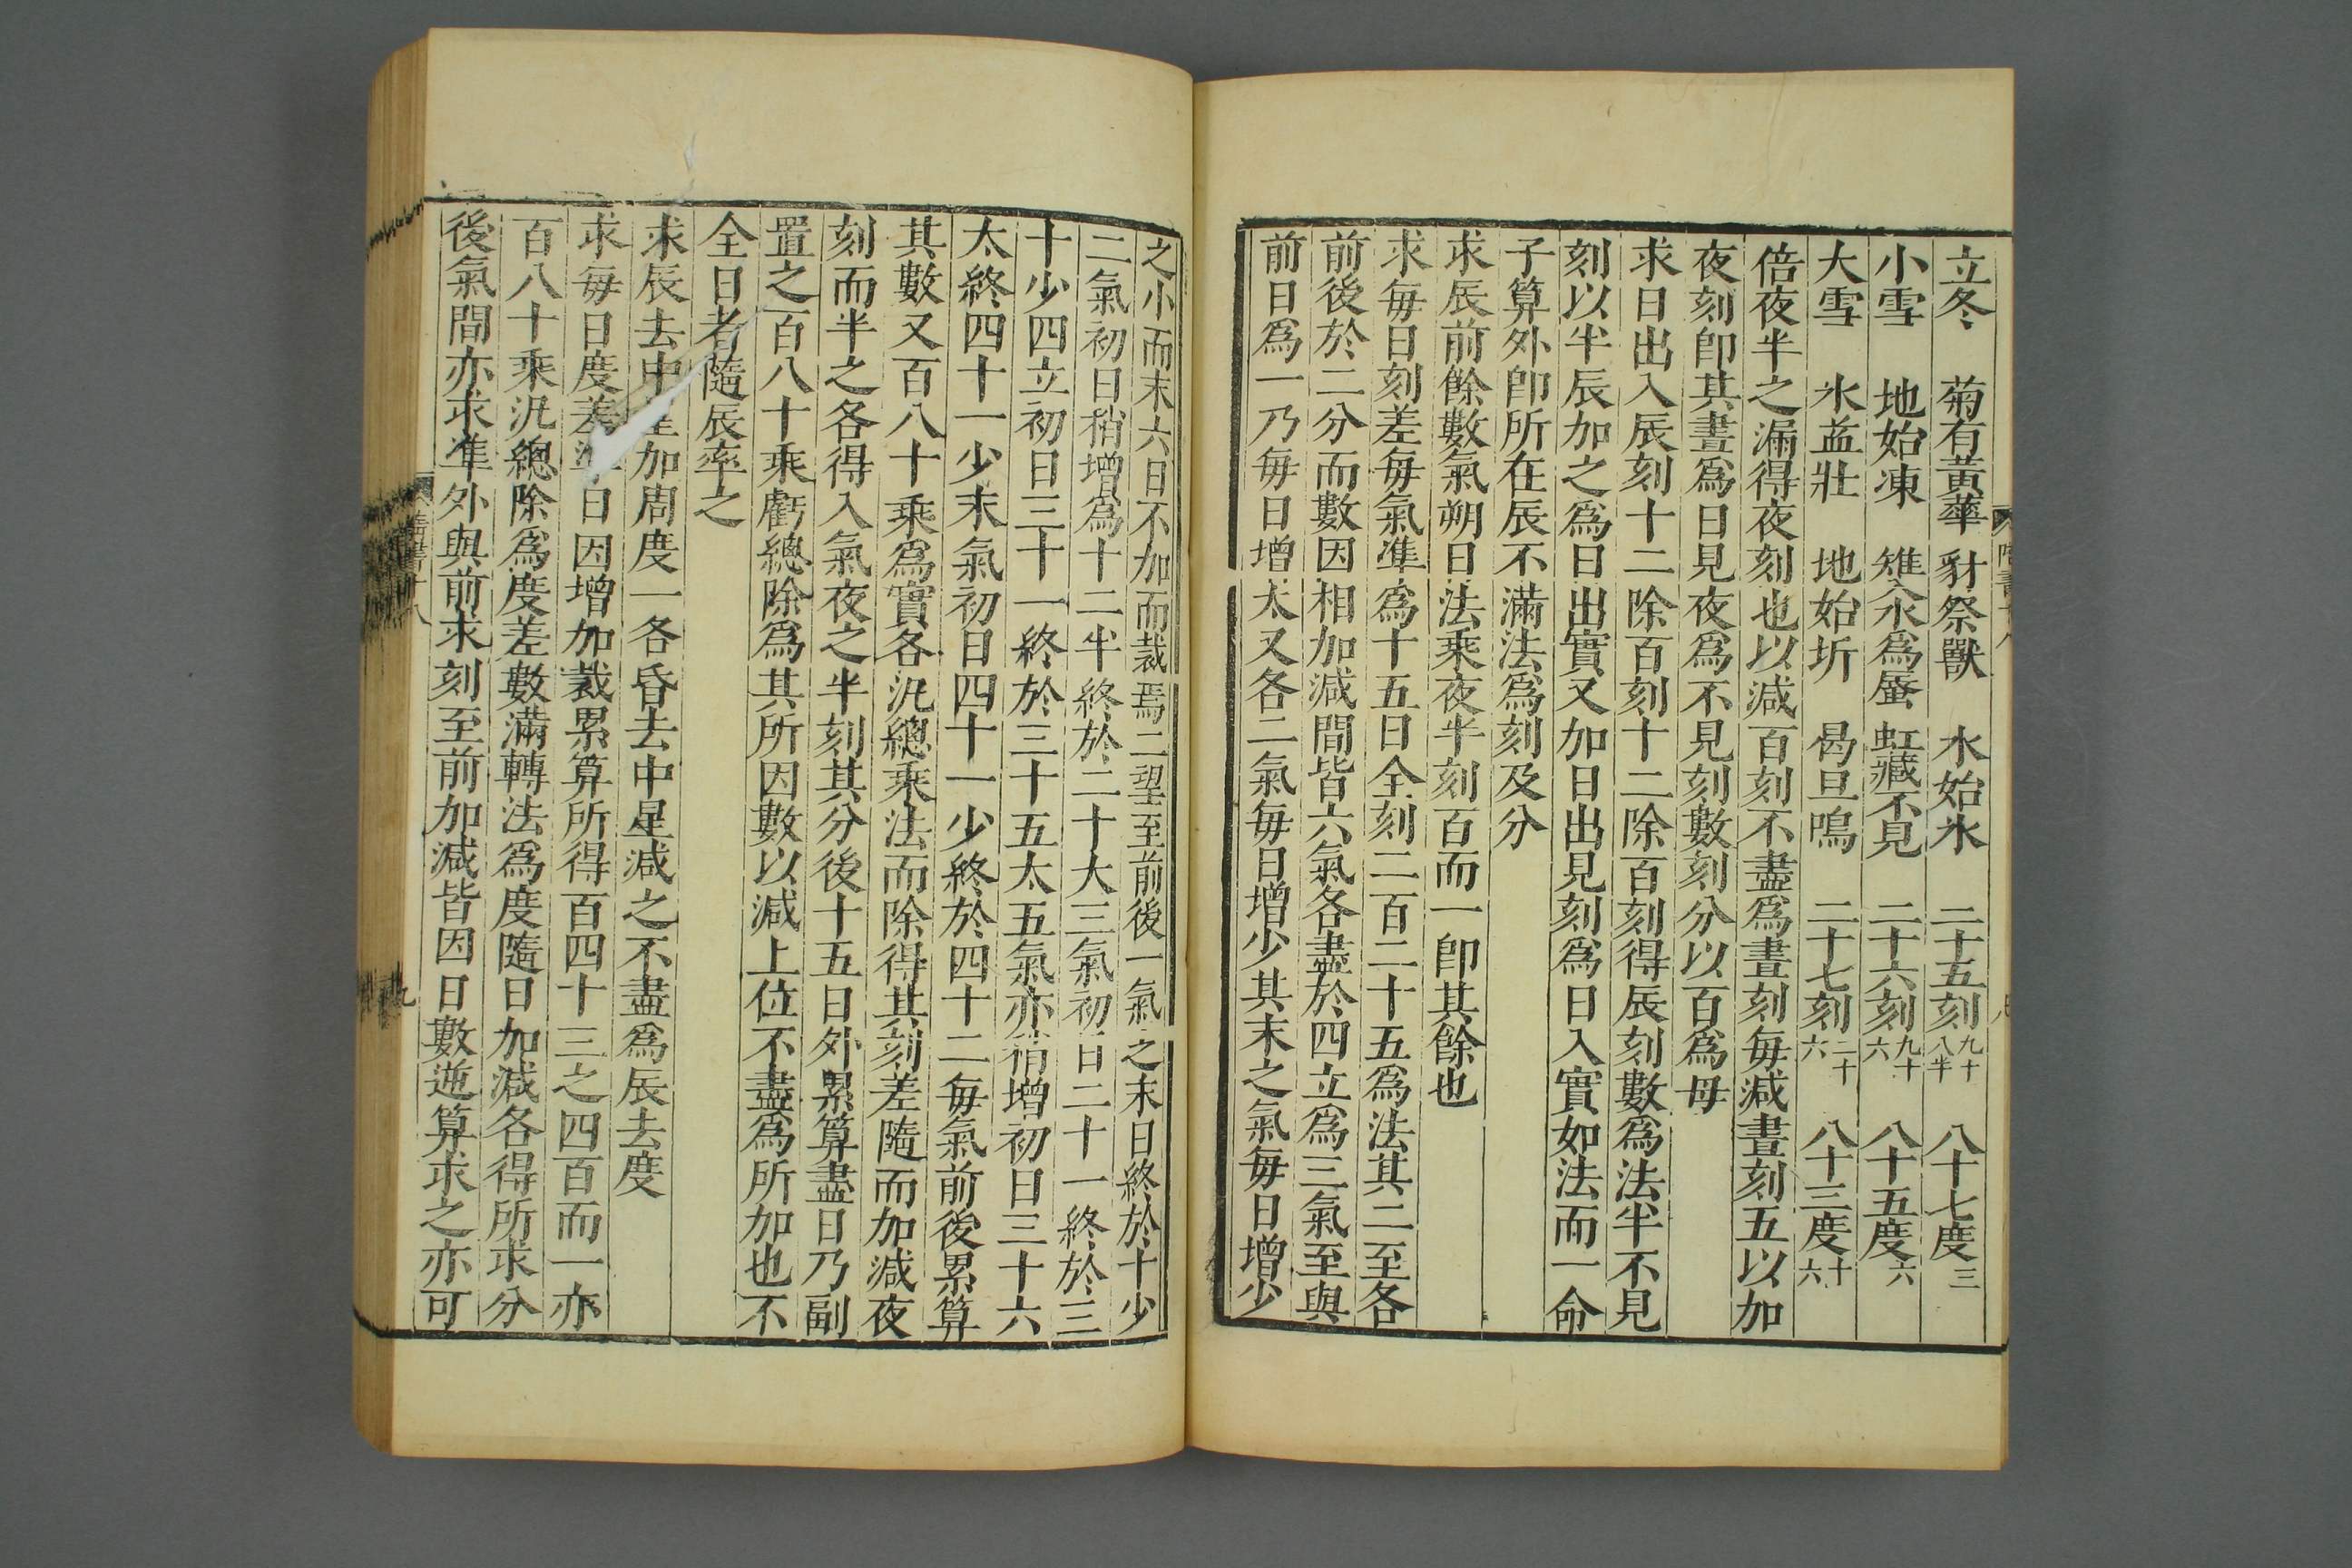 立冬 菊有黃華 豺祭獸 水始氷 二十五刻九十八半 八十七度三
小雪 地始凍 雉入水爲蜃 虹藏不見 二十六刻九十六 八十五度六
大雪 氷益壯 地始坼 曷旦鳴 二十七刻二十六 八十三度十六
倍夜半之漏得夜刻也以減百刻不盡爲晝刻每減晝刻五以加
夜刻卽其晝爲日見夜爲不見刻數刻分以百爲母
求日出入辰刻十二除百刻十二除百刻得辰刻數爲法半不見
刻以半辰加之爲日出實又加日出見刻爲日入實如法而一命
子算外卽所在辰不滿法爲刻及分
求辰前餘數氣朔日法乘夜半刻百而一卽其餘也
求每日刻差每氣準爲十五日全刻二百二十五爲法其二至各
前後於二分而數因相加減間皆六氣各盡於四立爲三氣至與
前日爲一乃每日增太又各二氣每日增少其末之氣每日增少
之小而末六日不加而裁焉二望至前後一氣之末日終於十少
二氣初日稍增爲十二半終於二十大三氣初日二十一終於三
十少四立初日三十一終於三十五太五氣亦稍增初日三十六
太終四十一少末氣初日四十一少終於四十二每氣前後累算
其數又百八十乘爲實各汎總乘法而除得其刻差隨而加減夜
刻而半之各得入氣夜之半刻其分後十五日外累算盡日乃副
置之百八十乘虧總除爲其所因數以減上位不盡爲所加也不
全日者隨辰率之
求辰去中星加周度一各昏去中星減之不盡爲辰去度
求每日度差準日因增加裁累算所得百四十三之四百而一亦
百八十乘汎總除爲度差數滿轉法爲度隨日加減各得所求分
後氣間亦求準外與前求刻至前加減皆因日數逆算求之亦可
隋書十八
九